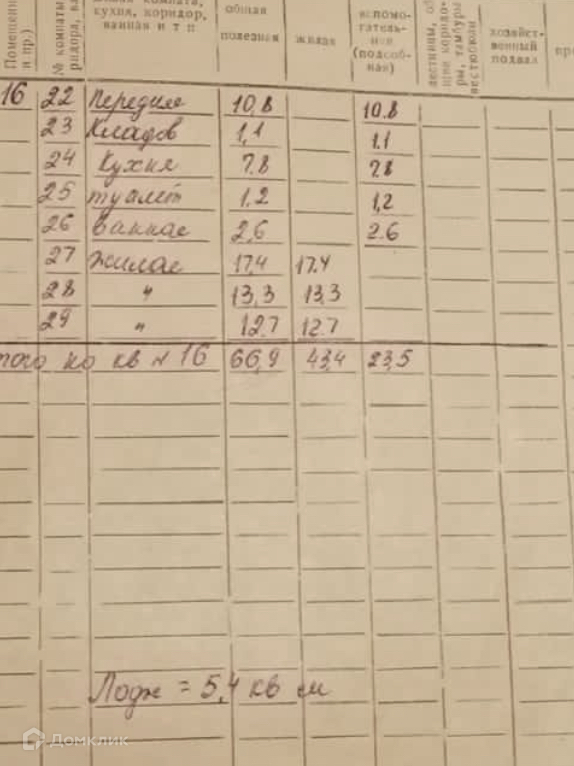 Помещени
и пр.)
№ комнаты
ридора, ва
кухня, коридор,
ванная и т п
общая
полезная
жилая
вспомо-
гатель-
ная
(подсоб-
ная)
лестницы, об
щие коридо-
ры, тамбуры
вестюбюли
хозяйст-
венный
подвал
16 22 Передняя 10,8 10.8
23 Кладов 1,1 1.1
24 Кухня 7.8 7.8
25 туалет 1,2 1,2
26 Ванная 2,6 2.6
27 Жилая 17,4 17.4
28 " 13,3 13,3
29 " 12.7 12.7
того по кв № 16 66,9 43,4 23,5
Лодж = 5,4 кв м
Домклик